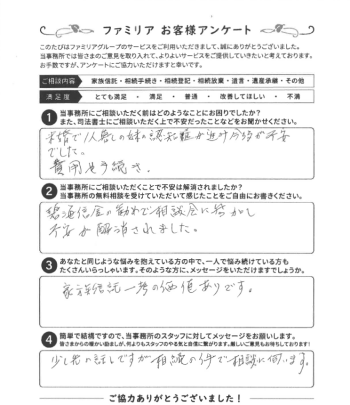 ファミリア お客様アンケート
このたびはファミリアグループのサービスをご利用いただきまして、誠にありがとうございました。
当事務所では皆さまのご意見を取り入れて、よりよいサービスをご提供していきたいと考えております。
お手数ですが、アンケートにご協力いただけますと幸いです。
ご相談内容 家族信託・相続手続き・相続登記・相続放棄・遺言・遺産承継・その他
満足度 とても満足 ・ 満足 ・ 普通 ・ 改善してほしい ・ 不満
1 当事務所にご相談いただく前はどのようなことにお困りでしたか?
また、司法書士にご相談いただく上で不安だったことなどをお聞かせください。
未婚で1人暮しの妹の認知症が進む今後が不安
でした。
費用と手続き。
2 当事務所にご相談いただくことで不安は解消されましたか?
当事務所の無料相談を受けていただいて感じたことをご自由にお書きください。
碧海信金の勧めで相談会に参加し
不安が解消されました。
3 あなたと同じような悩みを抱えている方の中で、一人で悩み続けている方も
たくさんいらっしゃいます。そのような方に、メッセージをいただけますでしょうか。
家族信託一考の価値ありです。
4 簡単で結構ですので、当事務所のスタッフに対してメッセージをお願いします。
皆さまからの暖かい励ましが、何よりもスタッフのやる気と自信に繋がります。厳しいご意見もお待ちしております!
少し先の話しですが相続の件で相談に伺います。
ご協力ありがとうございました!